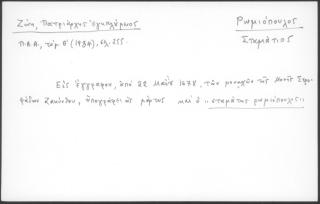 Ζώη, Πατριάρχης
Ρωμιόπουλος
Σταμάτιος
Π.Α.Α, τόμ. Θ' (1934), σελ. 255.
Εἰς ἔγγραφον, ἀπό 22 Μαΐου 1678, τῶν μοναχῶν τῆς Μονῆς Στρο-
φάδων Ζακύνθου, ὑπογράφει ὡς μάρτυς καί ὁ "σταμάτης ρωμιόπουλος"